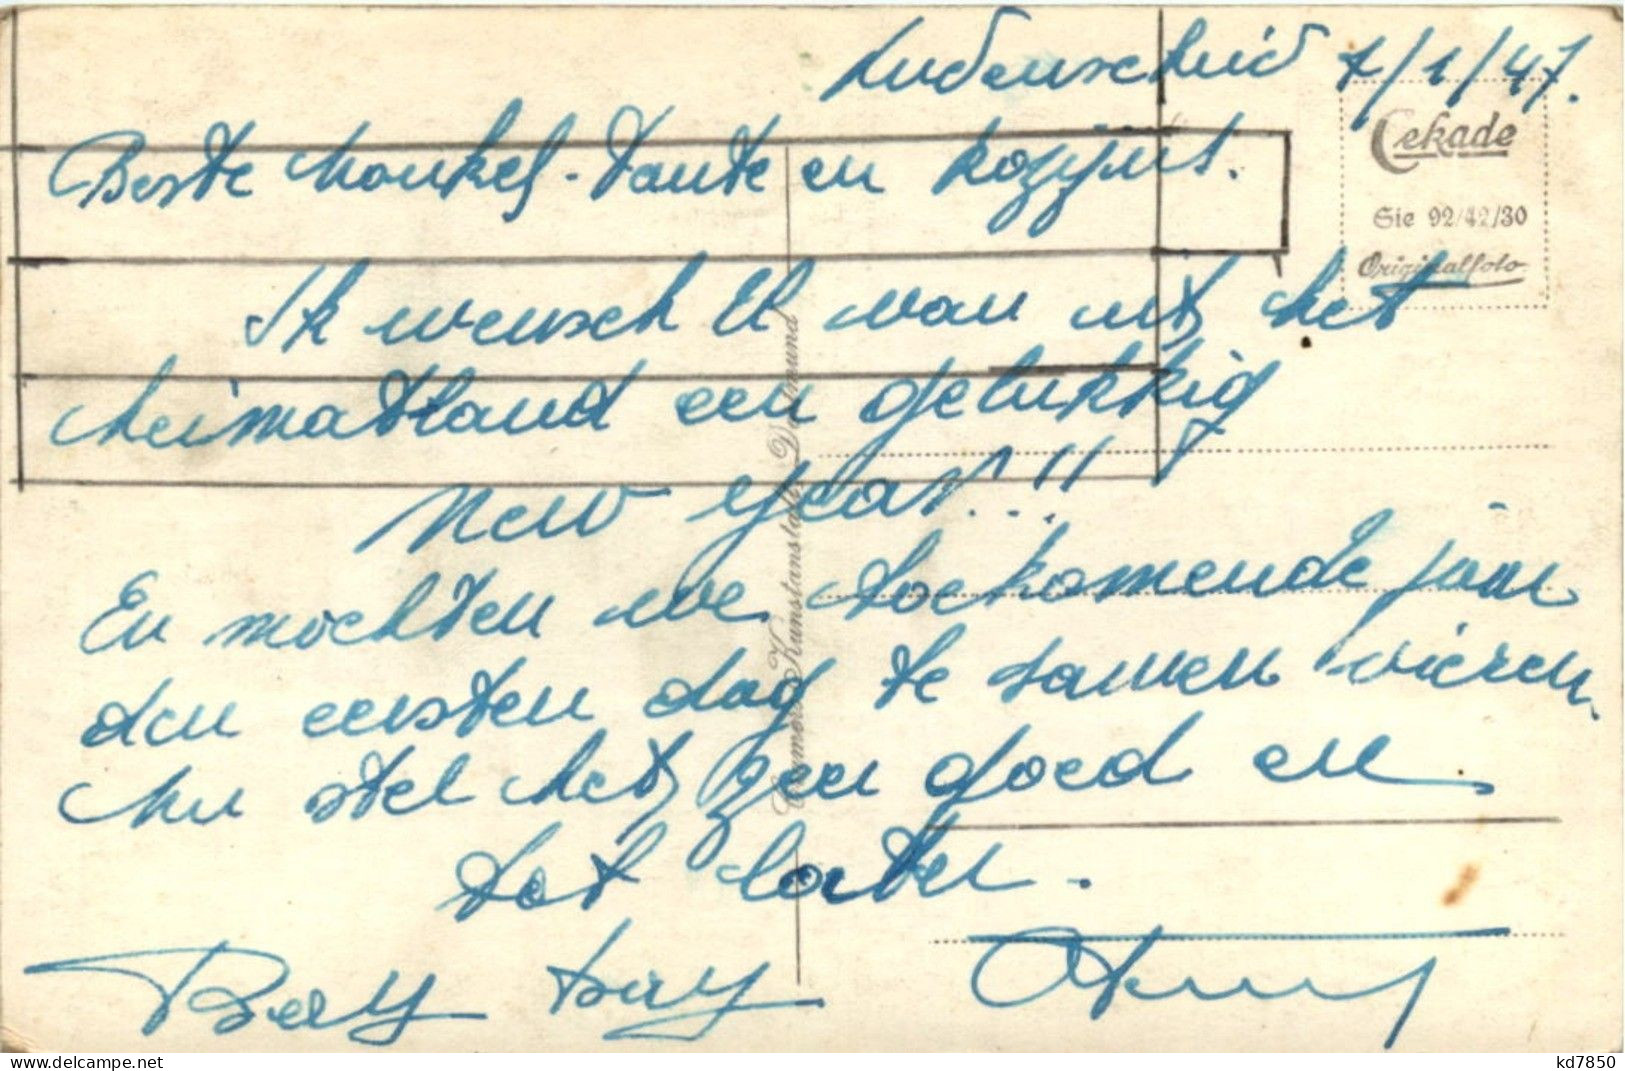 Ludenscheid 1/1/47.
Beste Nonkel - Tante en kozijns.
Cekade
Sie 92/42/30
Originalfoto
Ik wensch U van uit het
heimatland een gelukkig
New Year!!!
En mochten we toekomende jaar
den eersten dag te samen vieren.
Nu stel het zeer goed en
tot later.
Cramers Kunstanstalt, Dortmund
delcampe.net
kd7850